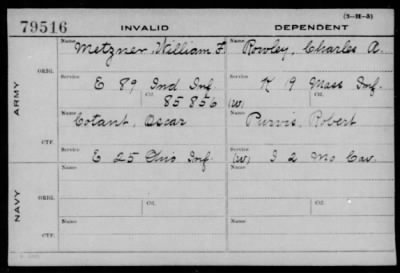 (3-H-3)
79516 INVALID DEPENDENT
Name Metzner, William F. Name Rowley, Charles A.
ARMY
ORIG.
Service E 89 Ind Inf. Service K 19 Mass Inf.
Ctf. 85856 (W) Ctf.
Name Cotant, Oscar Name Purvis, Robert
CTF.
Service E 25 Ohio Inf. Service (W) I 2 Mo Cav.
NAVY
Name Ctf. Name Ctf.
ORIG.
Name Name
CTF.